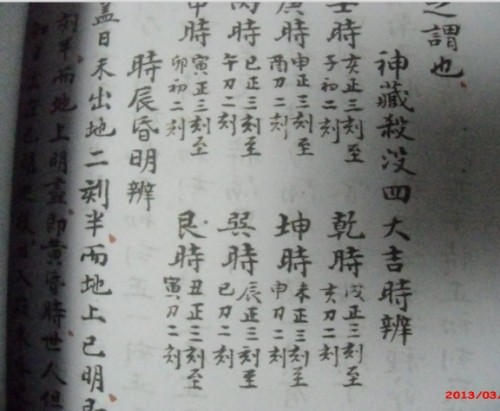 之謂也
神藏殺没四大吉時辨
壬時 亥正三刻至 子初二刻 乾時 戌正三刻至 亥刀二刻
庚時 申正三刻至 酉刀二刻 坤時 未正三刻至 申刀二刻
丙時 巳正三刻至 午刀二刻 巽時 辰正三刻至 巳刀二刻
甲時 寅正三刻至 卯初二刻 艮時 丑正三刻至 寅刀二刻
時辰昏明辨
蓋日未出地二刻半而地上已明
刻半而地上明盡即黄昏時世人俱
2013/03